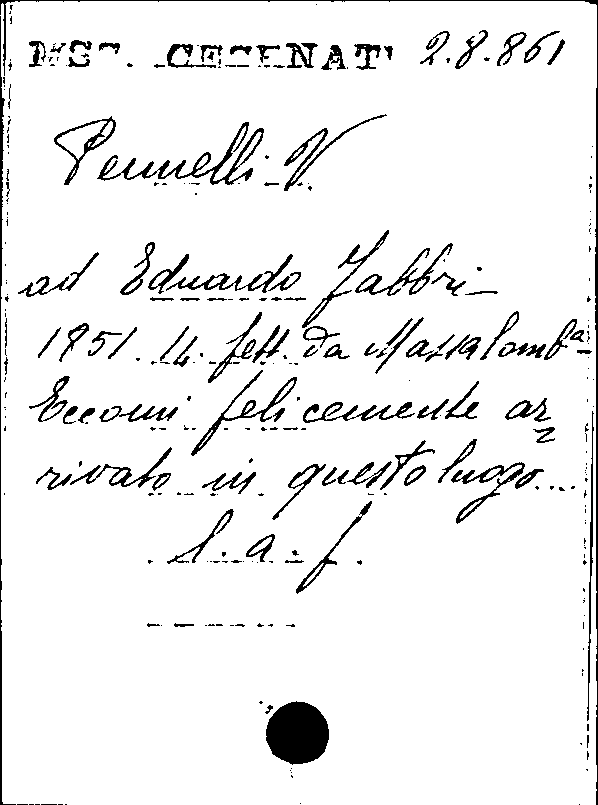 MSS. CESENATI 2.8.861
Pennelli V.
ad Eduardo Fabbri
1851. 14. fett. da Massalombª
Eccomi felicemente ar
rivato in questo luogo....
l. a. f.